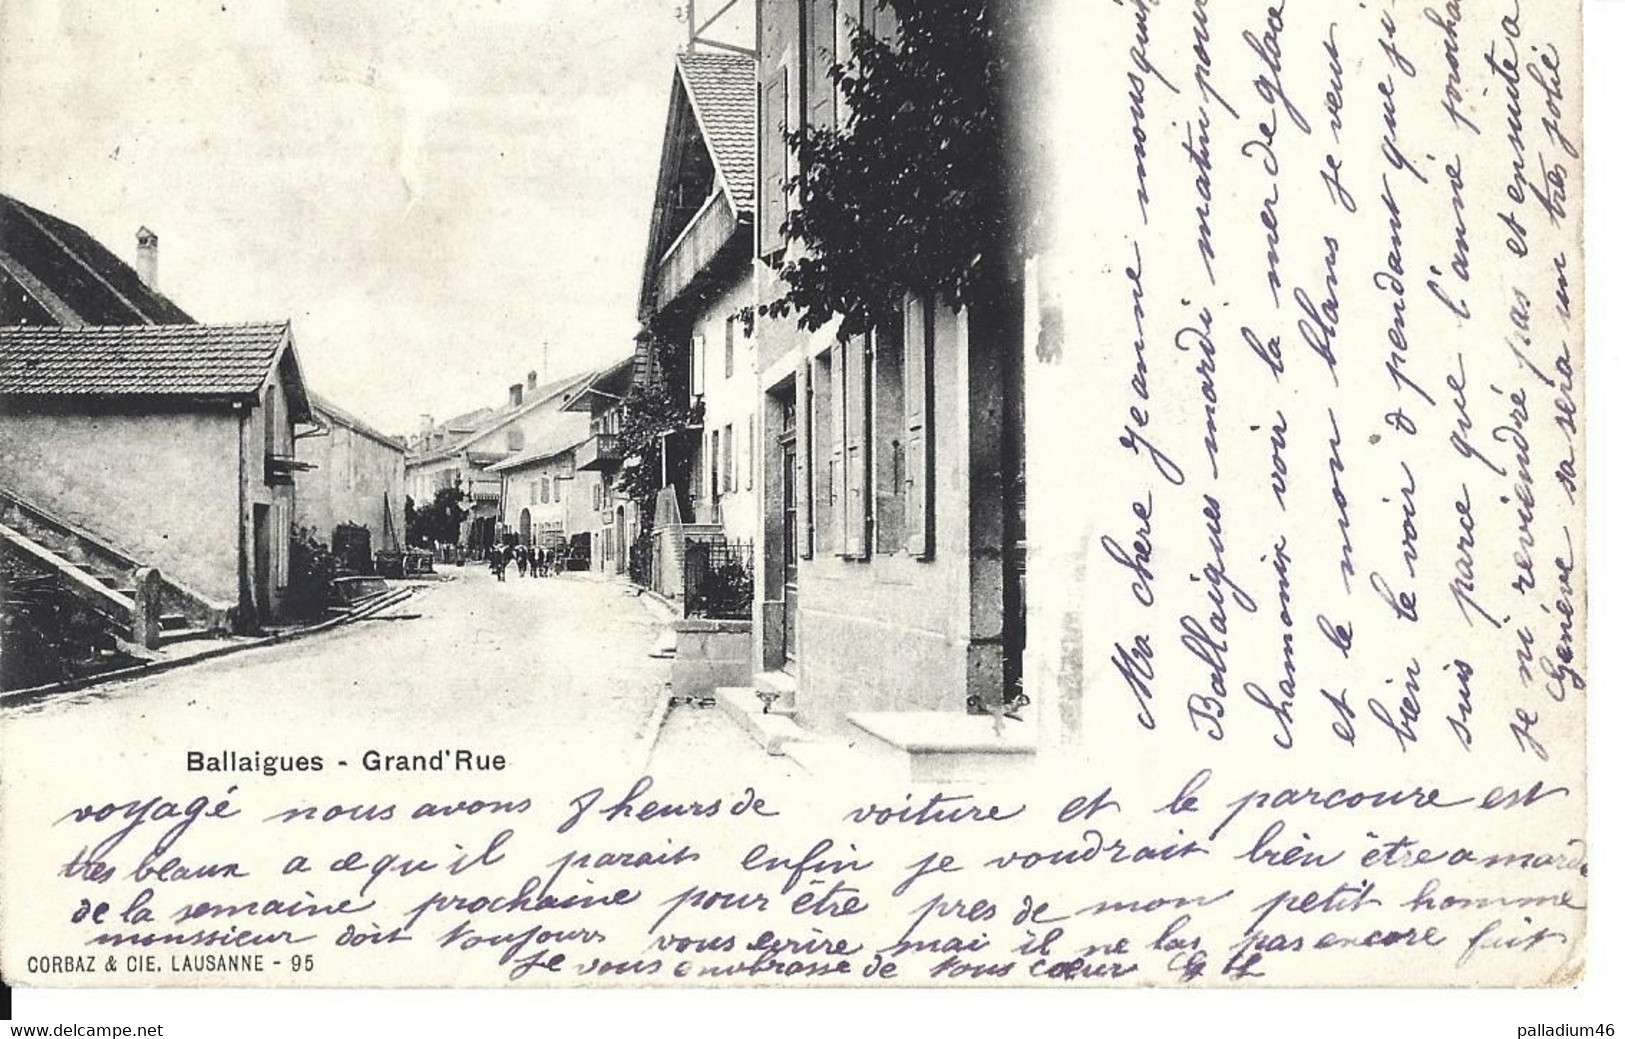 Ma chere Jeanne nous
Ballaigues mardi matin pour
chamonix voir la mer de glace
et le mon blans je veut
bien le voir pendant que j'i
suis parce que l'anné
je ni reviendré pas et ensuite a
Genéve sa sera un très jolie
Ballaigues - Grand'Rue
voyagé nous avons 8 heurs de voiture et le parcoure est
tres beaux a ce qu'il parait enfin je voudrait bien être a mardi
de la semaine prochaine pour être pres de mon petit homme
monssieur doit toujours vous ecrire mai il ne las pas encore fait
CORBAZ & CIE. LAUSANNE - 95
Je vous enmbrasse de tous cœur
delcampe.net
palladium46